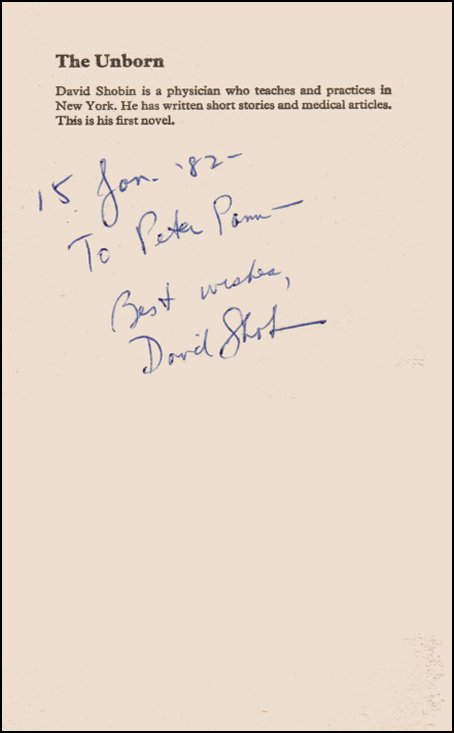 The Unborn
David Shobin is a physician who teaches and practices in
New York. He has written short stories and medical articles.
This is his first novel.
15 Jan. '82 –
To Peter Pann –
Best wishes,
David Shobin